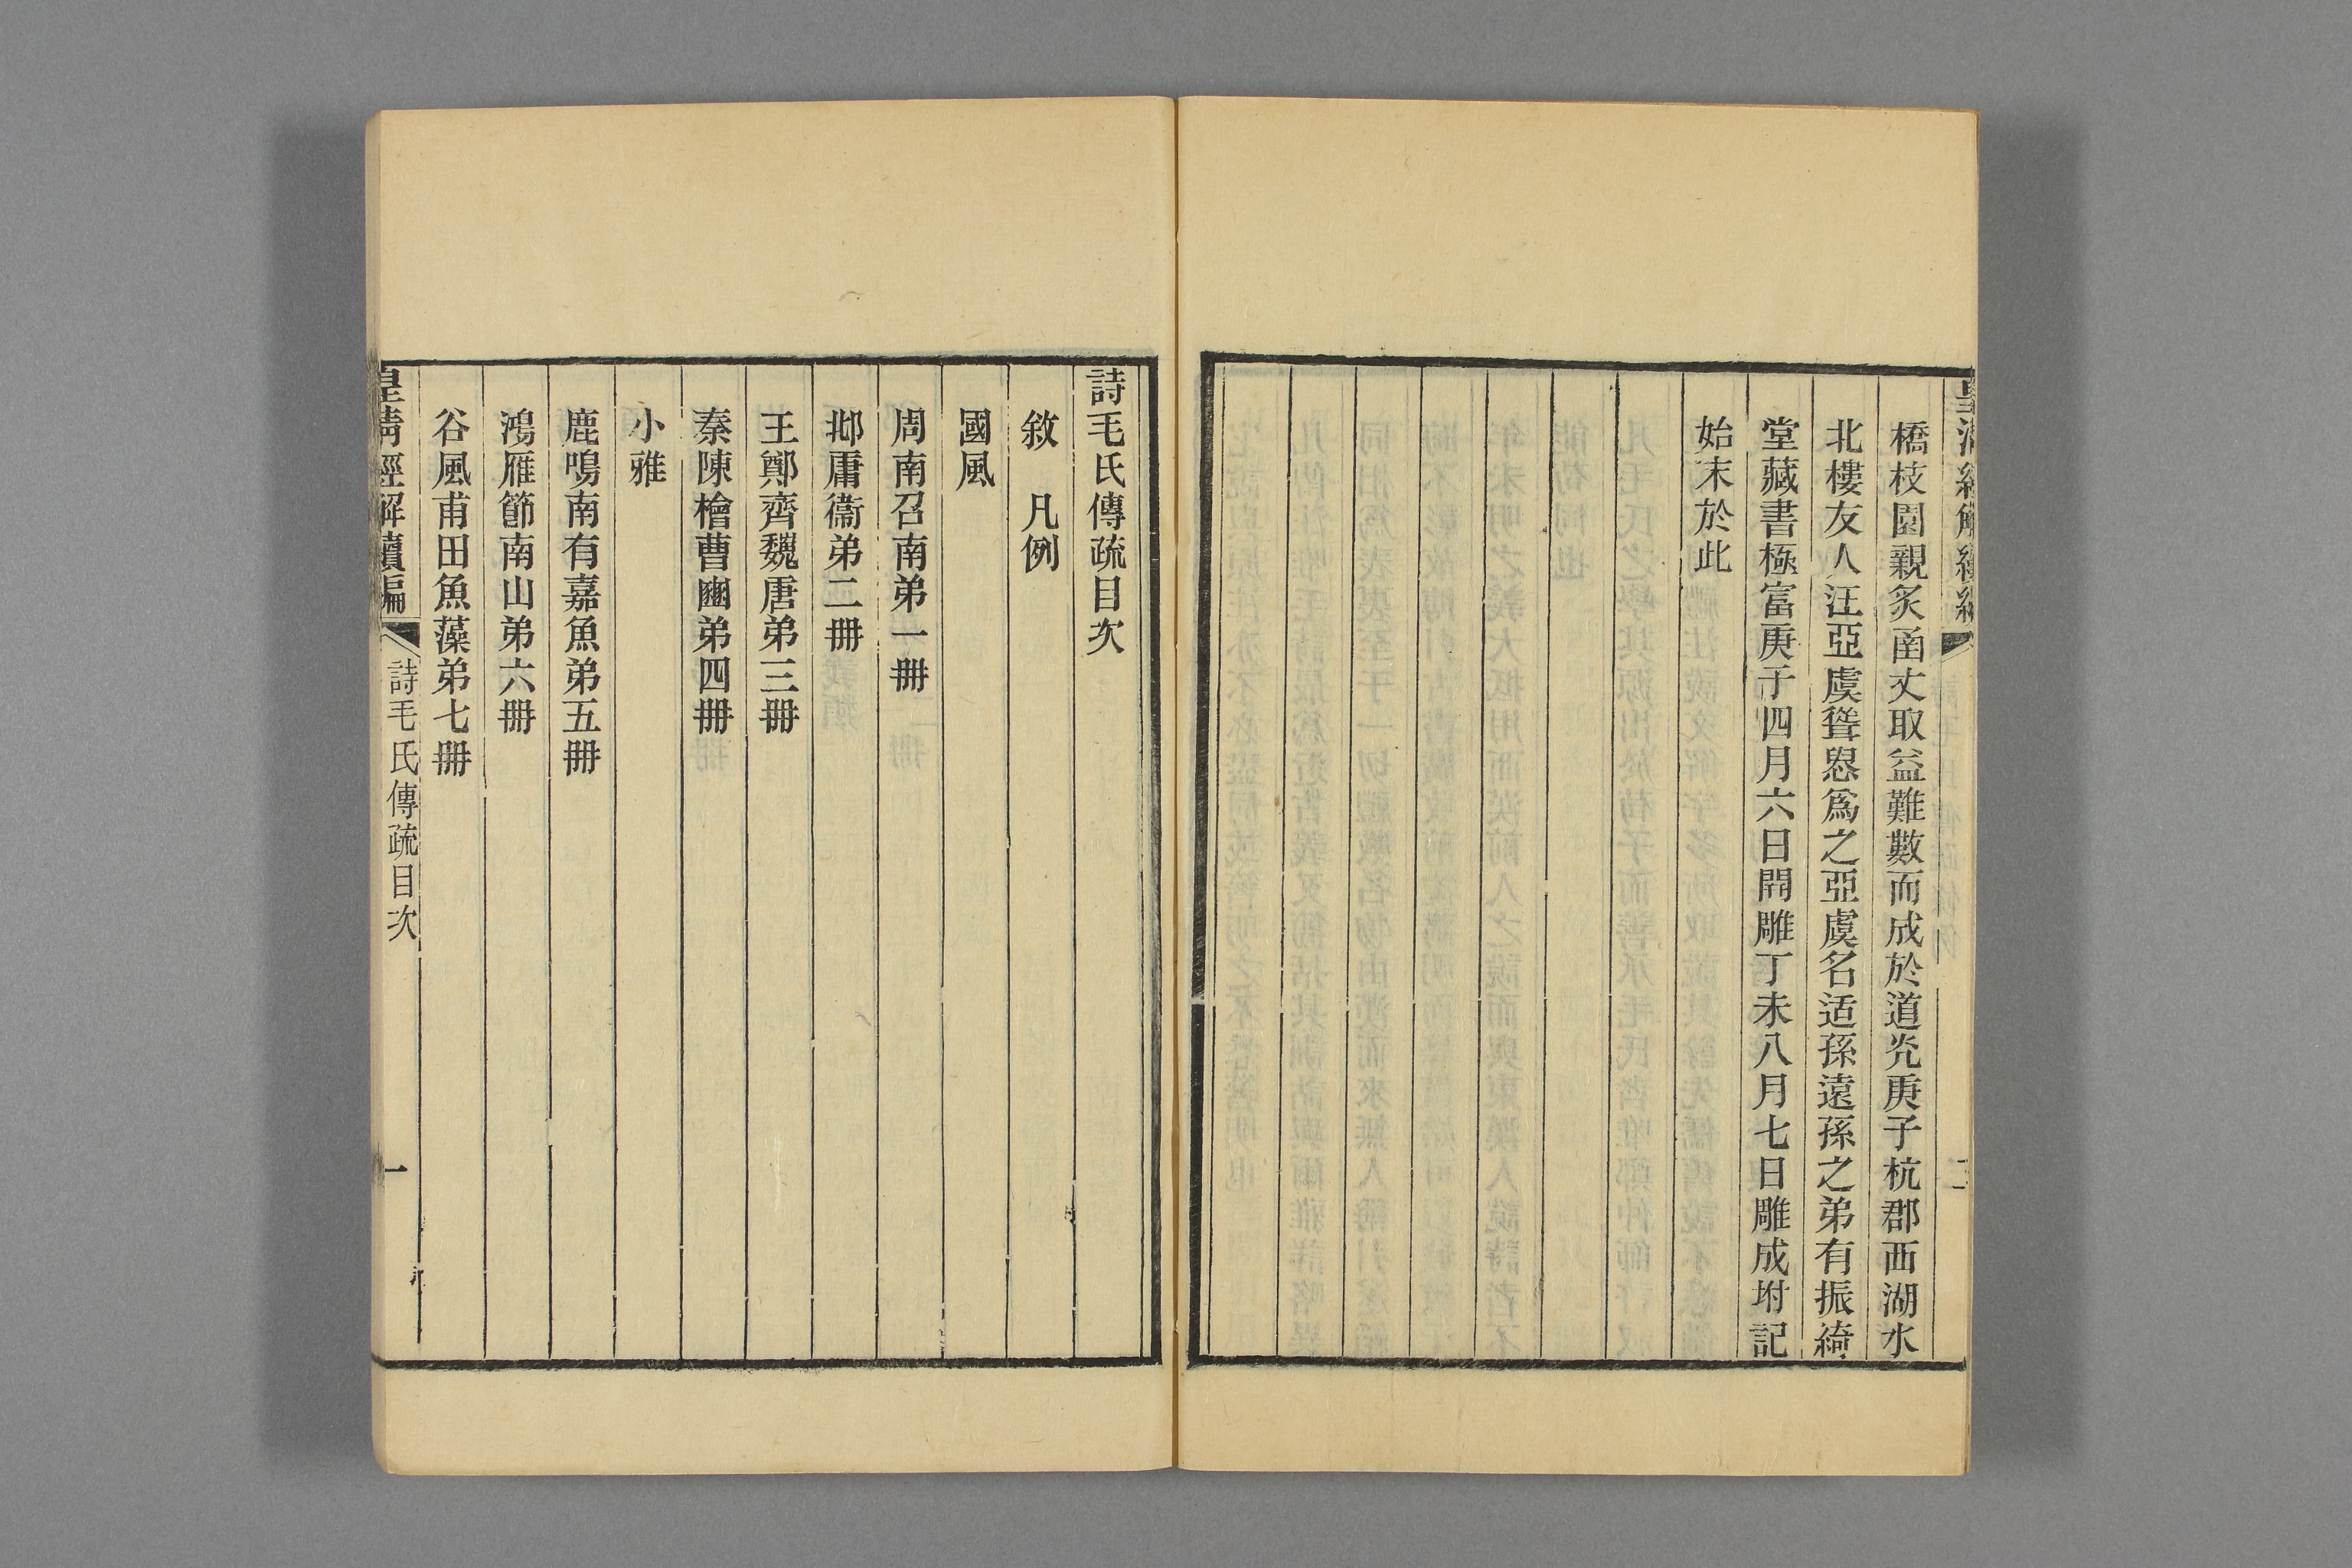 橋枝園親炙函丈取益難數而成於道光庚子杭郡西湖水
北樓友人汪亞虞聳惥爲之亞虞名适孫遠孫之弟有振綺
堂藏書極富庚子四月六日開雕丁未八月七日雕成坿記
始末於此
詩毛氏傳疏目次
敘　凡例
國風
周南召南弟一冊
邶庸衞弟二冊
王鄭齊魏唐弟三冊
秦陳檜曹豳弟四冊
小雅
鹿鳴南有嘉魚弟五冊
鴻雁節南山弟六冊
谷風甫田魚藻弟七冊
皇清經解續編
詩毛氏傳疏目次
一